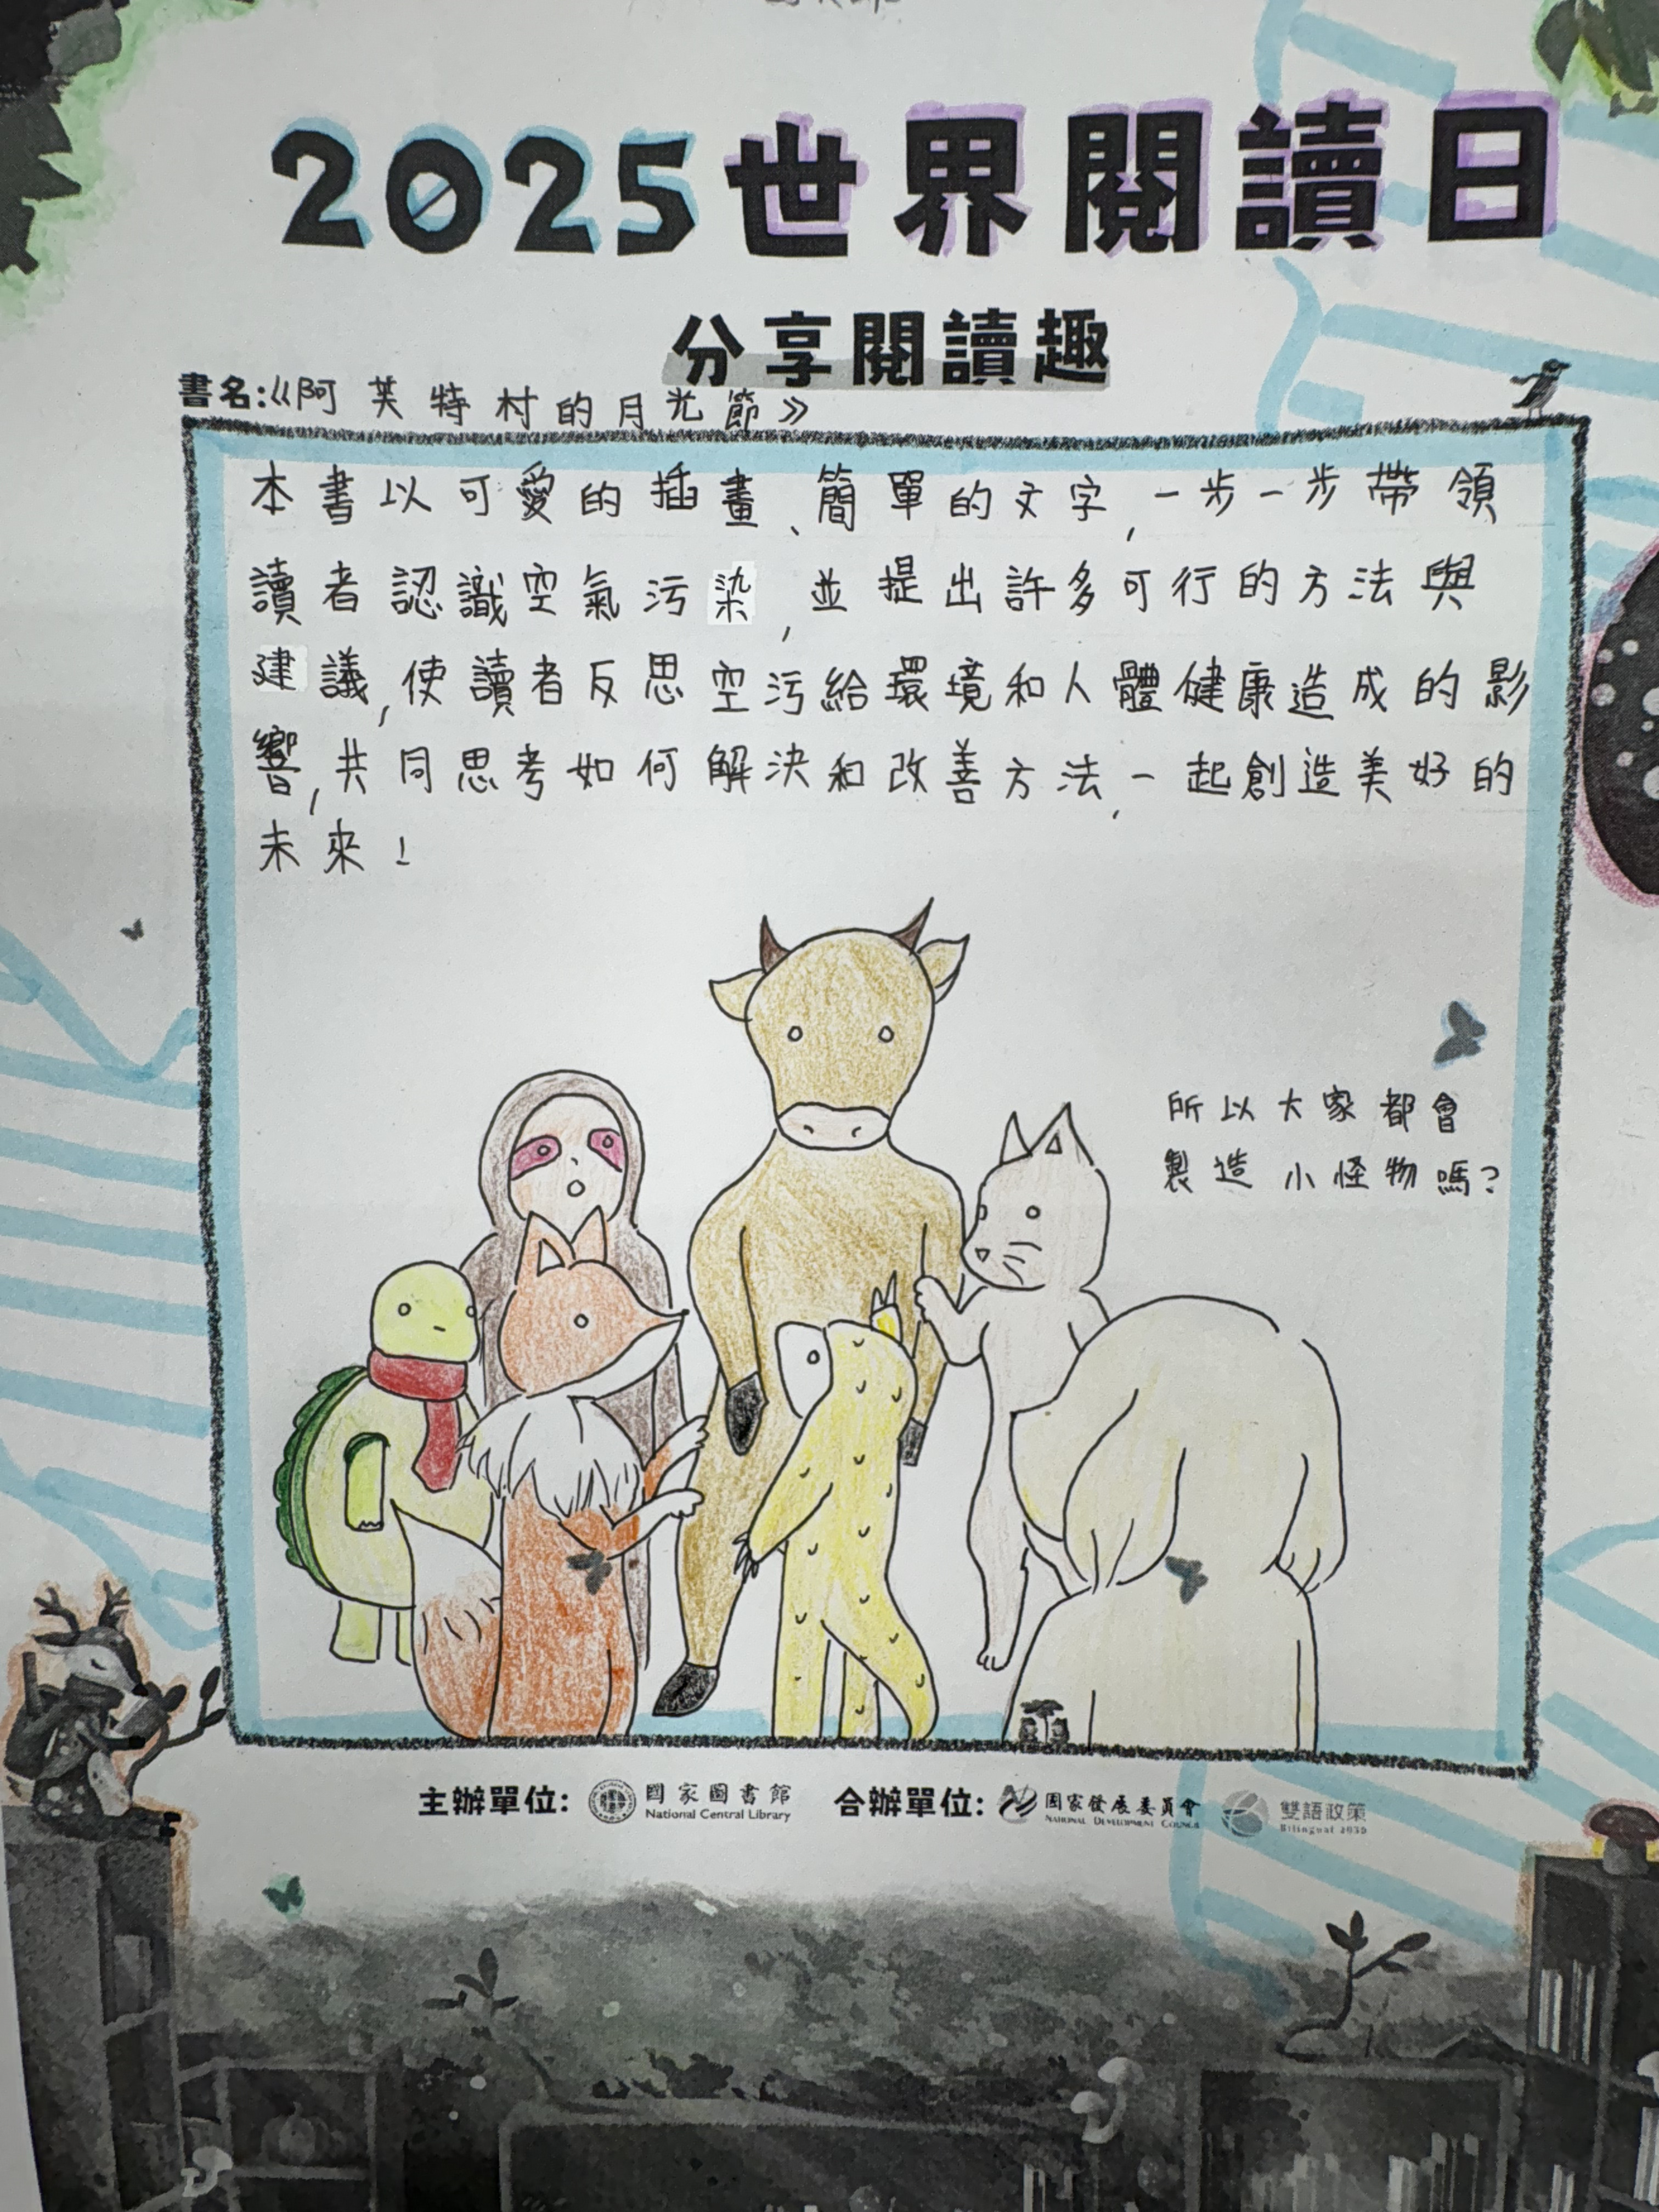 2025世界閱讀日
分享閱讀趣
書名:《阿芙特村的月光節》
本書以可愛的插畫、簡單的文字,一步一步帶領
讀者認識空氣污染,並提出許多可行的方法與
建議,使讀者反思空污給環境和人體健康造成的影
響,共同思考如何解決和改善方法,一起創造美好的
未來!
所以大家都會
製造小怪物嗎?
主辦單位: 國家圖書館 合辦單位: 國家發展委員會 雙語政策
National Central Library NATIONAL DEVELOPMENT COUNCIL Bilingual 2030